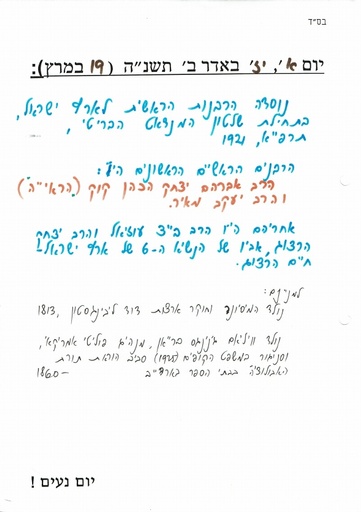 בס״ד
יום א׳, יז׳ באדר ב׳ תשנ״ה (19 במרץ):
נוסדה הרבנות הראשית לארץ ישראל,
בתחילת שלטון המנדאט הבריטי,
תרפ״א, 1921
הרבנים הראשיים הראשונים היו:
הרב אברהם יצחק הכהן קוק (הראי״ה)
והרב יעקב מאיר.
אחריהם היו הרב ב״צ עוזיאל והרב יצחק
הרצוג, אביו של הנשיא ה-6 של ארץ ישראל-
חיים הרצוג.
נולד המיסיונר וחוקר ארצות דוד ליבינגסטון, 1813
נולד וויליאם ג׳נינגס בראיאן, מנהיג פוליטי אמריקאי,
וסניגור במשפט הקופים (1925) סביב הוראת תורת
האבולוציה בבתי הספר בארה״ב - 1860
יום נעים!